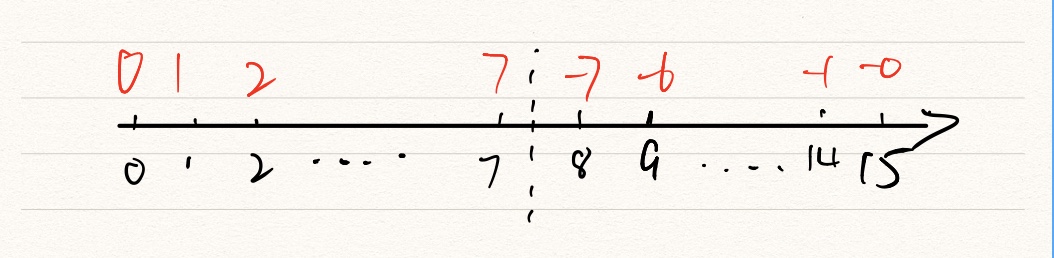 0 1 2 7 -7 -6 -1 -0
0 1 2 .... 7 8 9 .... 14 15